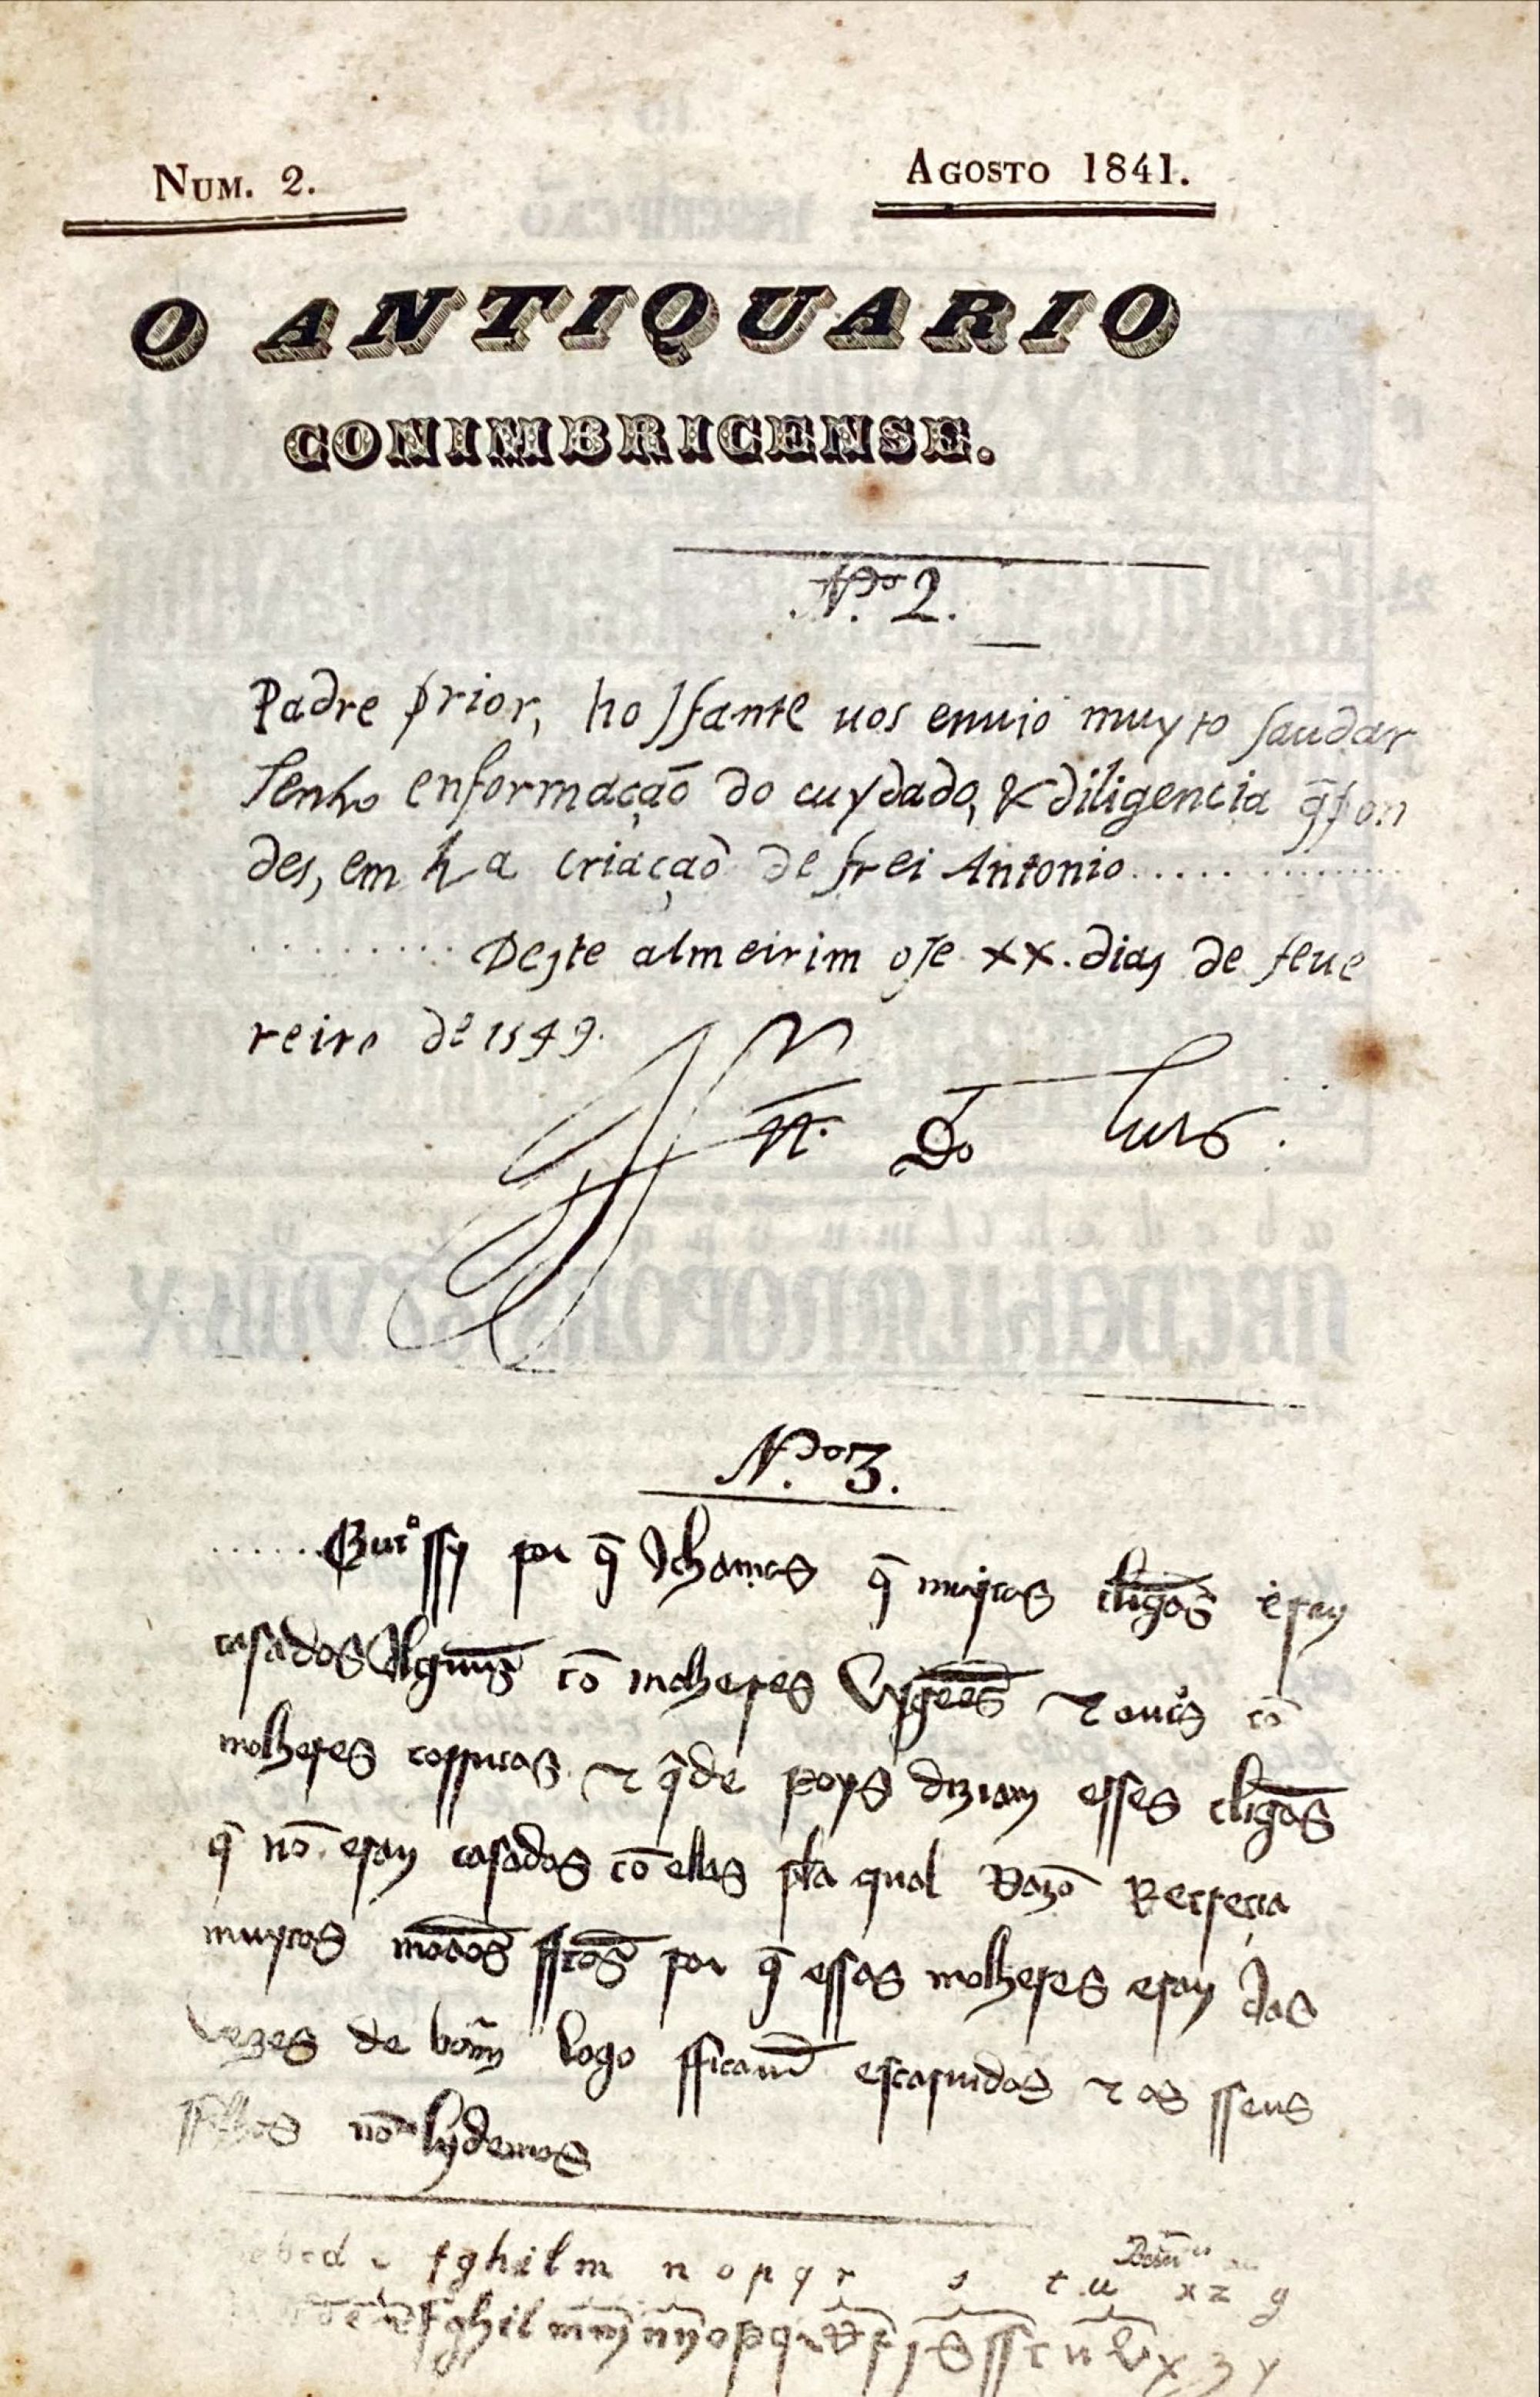 NUM. 2.
AGOSTO 1841.
O ANTIQUARIO
CONIMBRICENSE.
N.º 2.
Padre prior, ho Iffante uos enuio muyto saudar
Tenho enformação do cuydado, & diligencia q̃ pon
des, em ha criação de frei Antonio..............
......... Deste almeirim oje xx. dias de feue
reiro de 1549.
Luis.
N.º 3.
......Outº ssy por q̃ Achamos q̃ muytos cligos eram
casados Alguus cō molheres Vygēes τ outºs cō
molheres corrutas τ q̃ de poys diziam esses cligos
q̃ nō eram casados cō ellas pla qual Razō Recreçia
muytos por q̃ essas molheres eram das
vezes de logo fficauā escarnidas τ os sseus
ffilhos nō lydemos
b c d e f g h i l m n o p q r s t u x z y
f g h i l m m n n o p q r R r s s ss t u v x z y